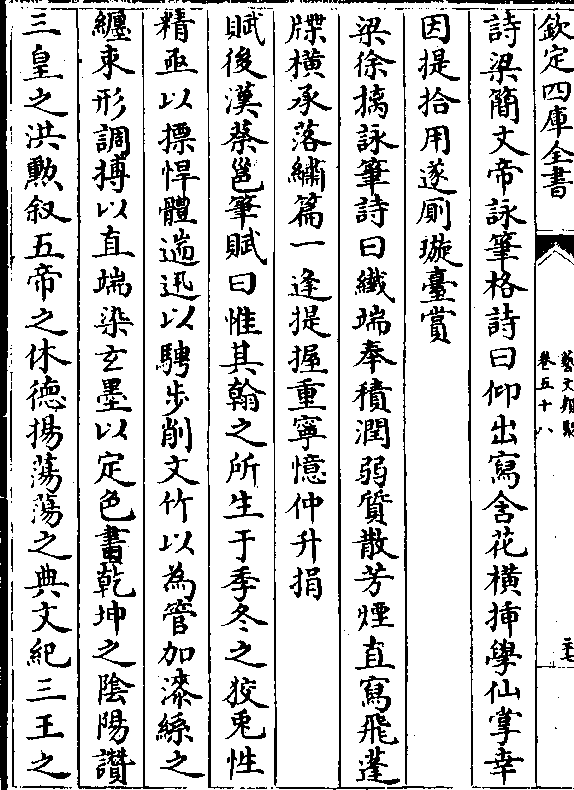 欽定四庫全書
藝文類聚
卷五十八
詩梁簡文帝詠筆格詩曰仰出寫含花橫插學仙掌幸
因提拾用遂廁璇臺賞
梁徐摛詠筆詩曰纎端奉積潤弱質散芳煙直寫飛蓬
牒橫承落繡篇一逢提握重寧憶仲升捐
賦後漢蔡邕筆賦曰惟其翰之所生于季冬之狡兎性
精亟以摽悍體遄迅以騁步削文竹以為管加漆絲之
纏束形調搏以直端染玄墨以定色畫乾坤之陰陽讚
三皇之洪勲叙五帝之休德揚蕩蕩之典文紀三王之